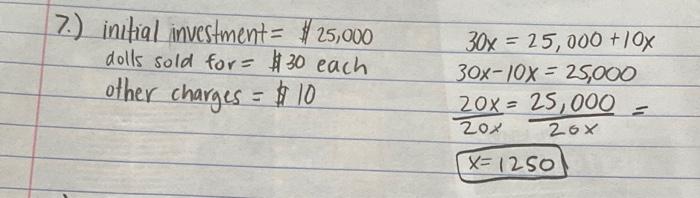 7.) initial investment = $25,000
dolls sold for = $30 each
other charges = $10
30x = 25,000 + 10x
30x - 10x = 25,000
20x = 25,000 =
20x 20x
x = 1250